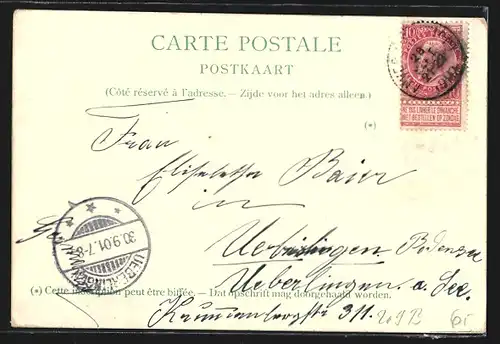 CARTE POSTALE
POSTKAART
(Côté réservé à l'adresse. — Zijde voor het adres alleen.)
(*)
10
NE PAS LIVRER LE DIMANCHE
NIET BESTELLEN OP ZONDAG
Frau
Elisabetha Baier
in
Ueberlingen Bodensee
Ueberlingen a. See.
30.9.01.7-8
UEBERLINGEN
(*) Cette indication peut être biffée. — Dat opschrift mag doorgehaald worden.
311.